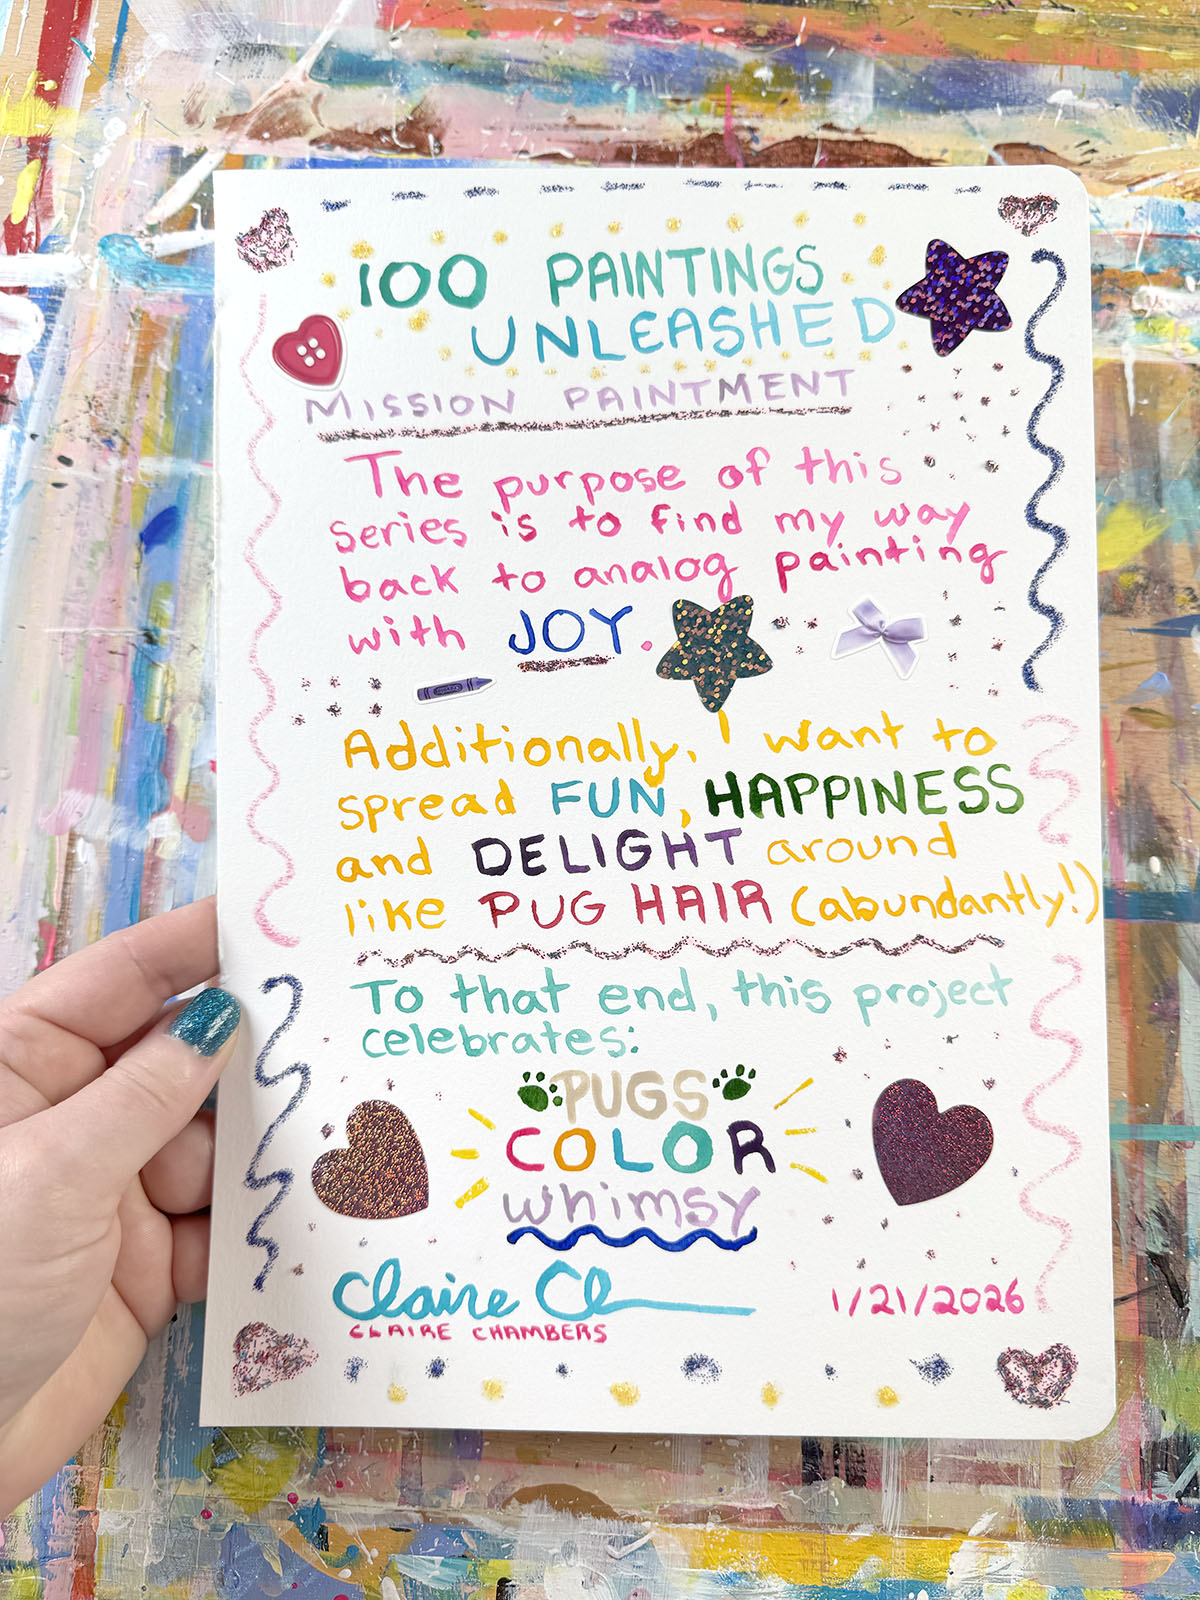 100 PAINTINGS
UNLEASHED
MISSION PAINTMENT
The purpose of this
series is to find my way
back to analog painting
with JOY.
Additionally, I want to
spread FUN, HAPPINESS
and DELIGHT around
like PUG HAIR (abundantly!)
To that end, this project
celebrates:
PUGS
COLOR
whimsy
Claire Ch
CLAIRE CHAMBERS
1/21/2026